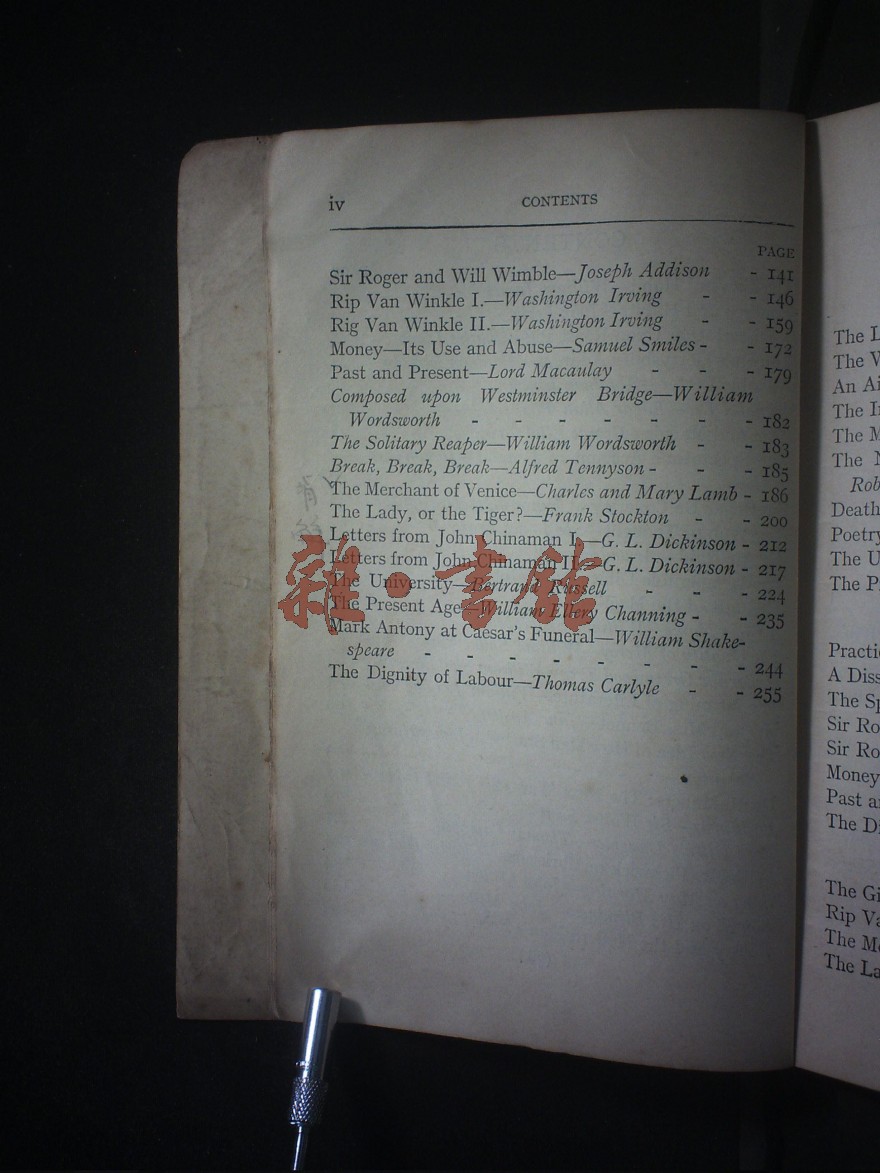 iv CONTENTS
PAGE
Sir Roger and Will Wimble—Joseph Addison - 141
Rip Van Winkle I.—Washington Irving - - 146
Rig Van Winkle II.—Washington Irving - - 159
Money—Its Use and Abuse—Samuel Smiles - - 172
Past and Present—Lord Macaulay - - - 179
Composed upon Westminster Bridge—William
Wordsworth - - - - - - - 182
The Solitary Reaper—William Wordsworth - - 183
Break, Break, Break—Alfred Tennyson - - - 185
The Merchant of Venice—Charles and Mary Lamb - 186
The Lady, or the Tiger?—Frank Stockton - - 200
Letters from John Chinaman I.—G. L. Dickinson - 212
Letters from John Chinaman II.—G. L. Dickinson - 217
The University—Bertrand Russell - - - 224
The Present Age—William Ellery Channing - - 235
Mark Antony at Caesar's Funeral—William Shake-
speare - - - - - - - - 244
The Dignity of Labour—Thomas Carlyle - - 255
雜·書館
The L
The V
An Ai
The I
The M
The N
Rob
Death
Poetry
The U
The P
Practi
A Diss
The Sp
Sir Ro
Sir Ro
Money
Past a
The D
The Gi
Rip Va
The Me
The La